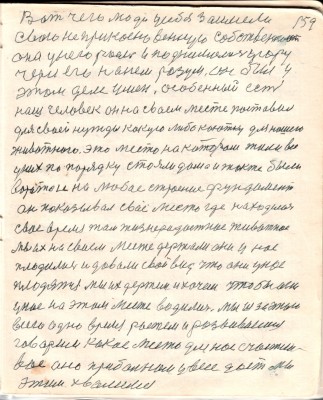 Вот чего люди у себя заимели 159
свою неприкосновенную собственность
она у него растет и поднимался в гору
через его на нем разум, он был у
этом деле умен, особенный сеть
наш человек он на своем месте поставил
для своей нужды какую либо конюшку для нашего
животного. Это место на котором тили во
у них по порядку стояли дома и также были
ворота и на любое строение фундамент
он показывал свое место где находился
свое время там жизнерадостные животные
мы их на своем месте держали они у нас
плодился и давали свой вид, что они у нас
плодятся мы их держим и хочем чтобы они
у нас на этом месте водились. мы и за этою
всего одно время растем и развиваемся
говорим какое место для нас счастли-
вое оно прибыльным у всех дает мы
этим хвалимся